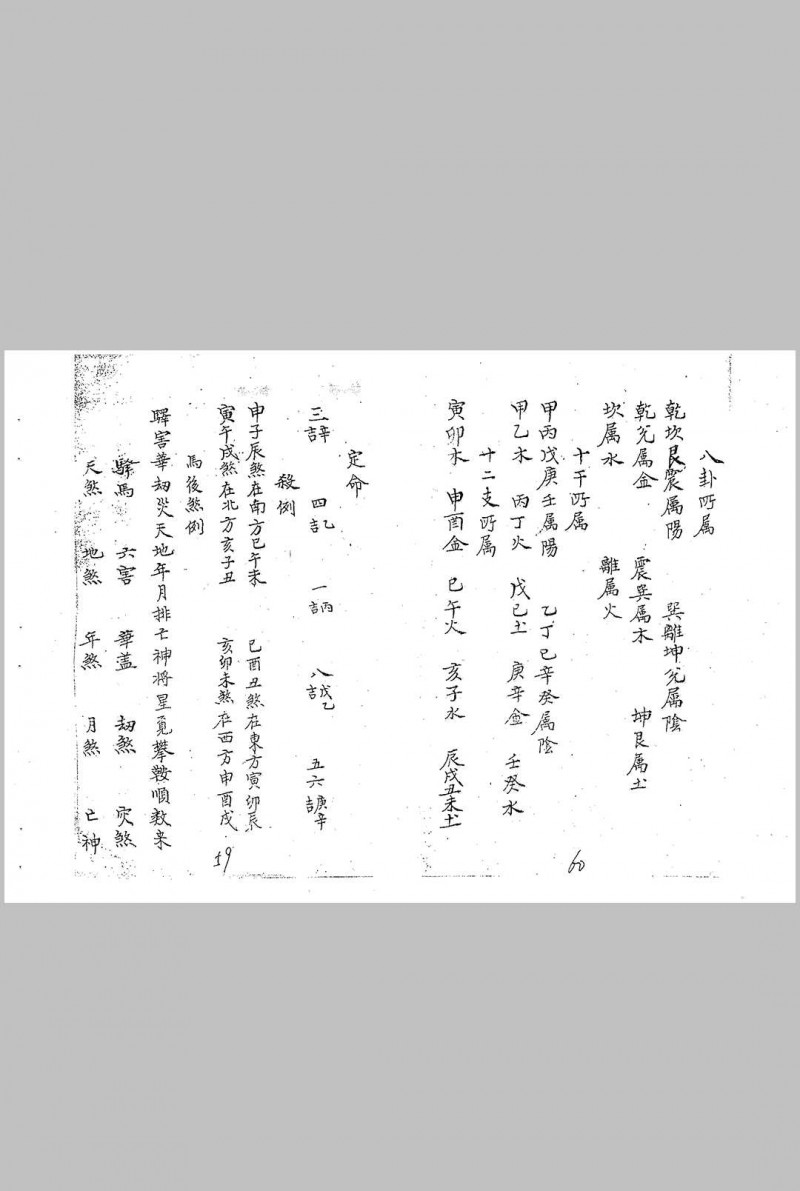 八卦所属
乾坎艮震属陽 巽離坤兌属陰
乾兌属金 震巽属木 坤艮属土
坎属水 離属火
十干所属
甲丙戊庚壬属陽 乙丁己辛癸属陰
甲乙木 丙丁火 戊己土 庚辛金 壬癸水
十二支所属
寅卯木 申酉金 巳午火 亥子水 辰戌丑未土
60
定命
三 四 一 八 五六
殺例
申子辰煞在南方巳午未 巳酉丑煞在東方寅卯辰
寅午戌煞在北方亥子丑 亥卯未煞在西方申酉戌
馬後煞例
驛害華劫災天地年月排亡神将星覓攀鞍順数来
驛馬 六害 華蓋 劫煞 灾煞
天煞 地煞 年煞 月煞 亡神
59